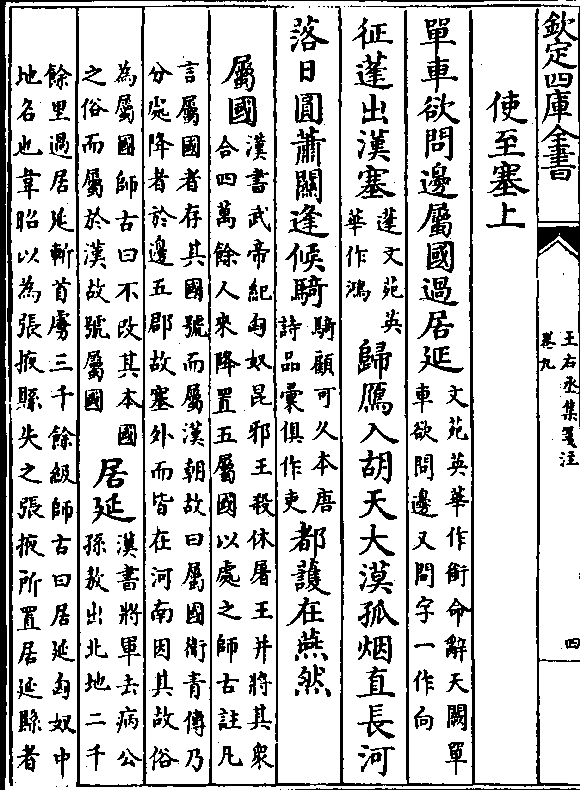 欽定四庫全書
王右丞集箋注
卷九
四
使至塞上
單車欲問邊屬國過居延
文苑英華作銜命辭天闕單
車欲問邊又問字一作向
征蓬出漢塞
蓬文苑英
華作鴻
歸鴈入胡天大漠孤烟直長河
落日圓蕭關逢候騎
騎顧可久本唐
詩品彙俱作吏
都護在燕然
屬國
漢書武帝紀匈奴昆邪王殺休屠王并將其衆
合四萬餘人來降置五屬國以處之師古註凡
言屬國者存其國號而屬漢朝故曰屬國衛青傳乃
分處降者於邊五郡故塞外而皆在河南因其故俗
為屬國師古曰不改其本國
之俗而屬於漢故號屬國
居延
漢書將軍去病公
孫敖出北地二千
餘里過居延斬首虜三千餘級師古曰居延匈奴中
地名也韋昭以為張掖縣失之張掖所置居延縣者